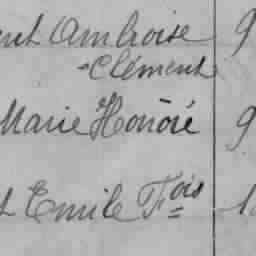 ent Ambroise 9
-Clément
Marie Honoré 9
t Emile Fois 1